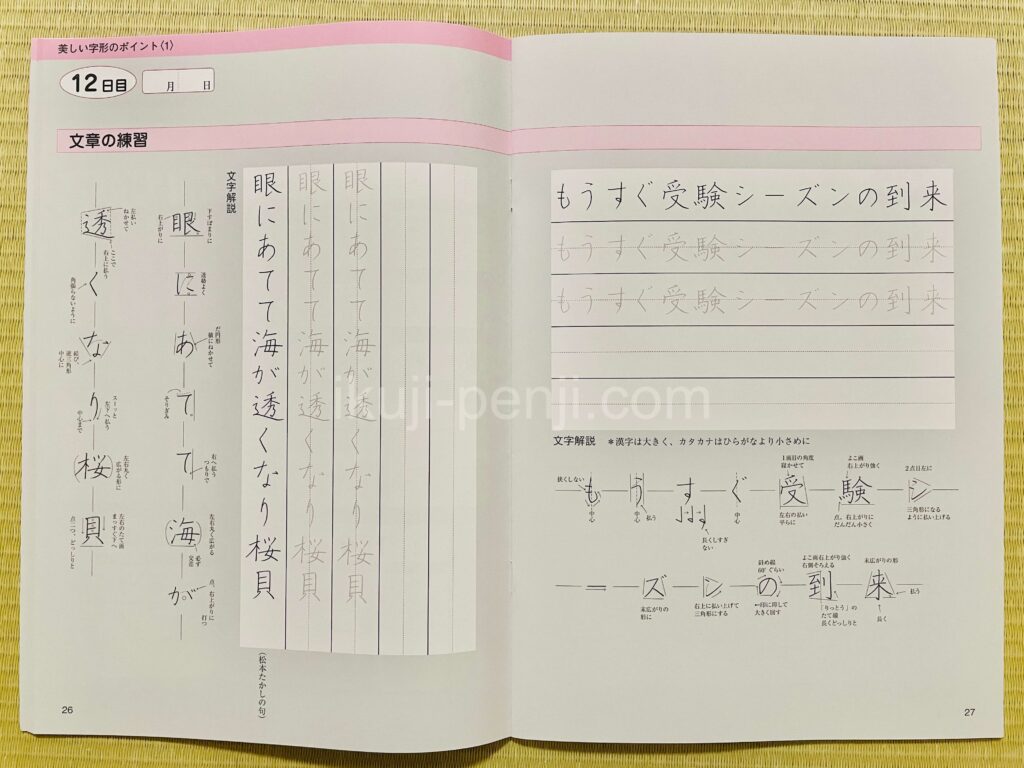 美しい字形のポイント〈1〉
12日目
月 日
文章の練習
文字解説
眼にあてて海が透くなり桜貝
眼にあてて海が透くなり桜貝
眼にあてて海が透くなり桜貝
(松本たかしの句)
眼
下すぼまりに
右上がりに
に
連絡よく
あ
だ円形
横にねかせて
て
そりぎみ
て
右へ払う
つもりで
海
左右丸く広がる
必ず
交差
が
点、右上がりに
打つ
透
左払い
ねかせて
ここで
右上に払う
く
角張らないように
な
結び、
逆三角形
中心に
り
スーッと
左下へ払う
中心まで
桜
左右丸く
広がる形に
貝
左右のたて画
まっすぐ下へ
点二つ、どっしりと
26
もうすぐ受験シーズンの到来
もうすぐ受験シーズンの到来
もうすぐ受験シーズンの到来
文字解説 *漢字は大きく、カタカナはひらがなより小さめに
も
狭くしない
中心
う
中心
払う
す
長くしすぎ
ない
ぐ
中心
受
1画目の角度
寝かせて
左右の払い
平らに
験
よこ画
右上がり強く
点、右上がりに
だんだん小さく
シ
2点目左に
三角形になる
ように払い上げる
ー
ズ
末広がりの
形に
ン
右上に払い上げて
三角形にする
の
斜め線
60°ぐらい
←印に即して
大きく回す
到
よこ画右上がり強く
右側そろえる
「りっとう」の
たて線
長くどっしりと
来
末広がりの形
払う
長く
27
ikuji-penji.com